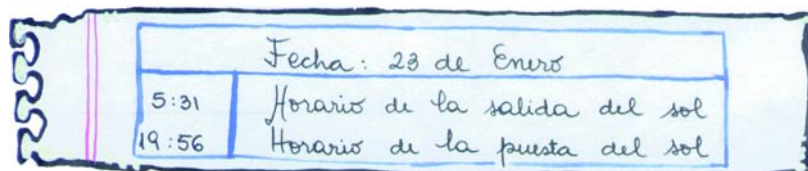 Fecha: 23 de Enero
5:31 Horario de la salida del sol
19:56 Horario de la puesta del sol